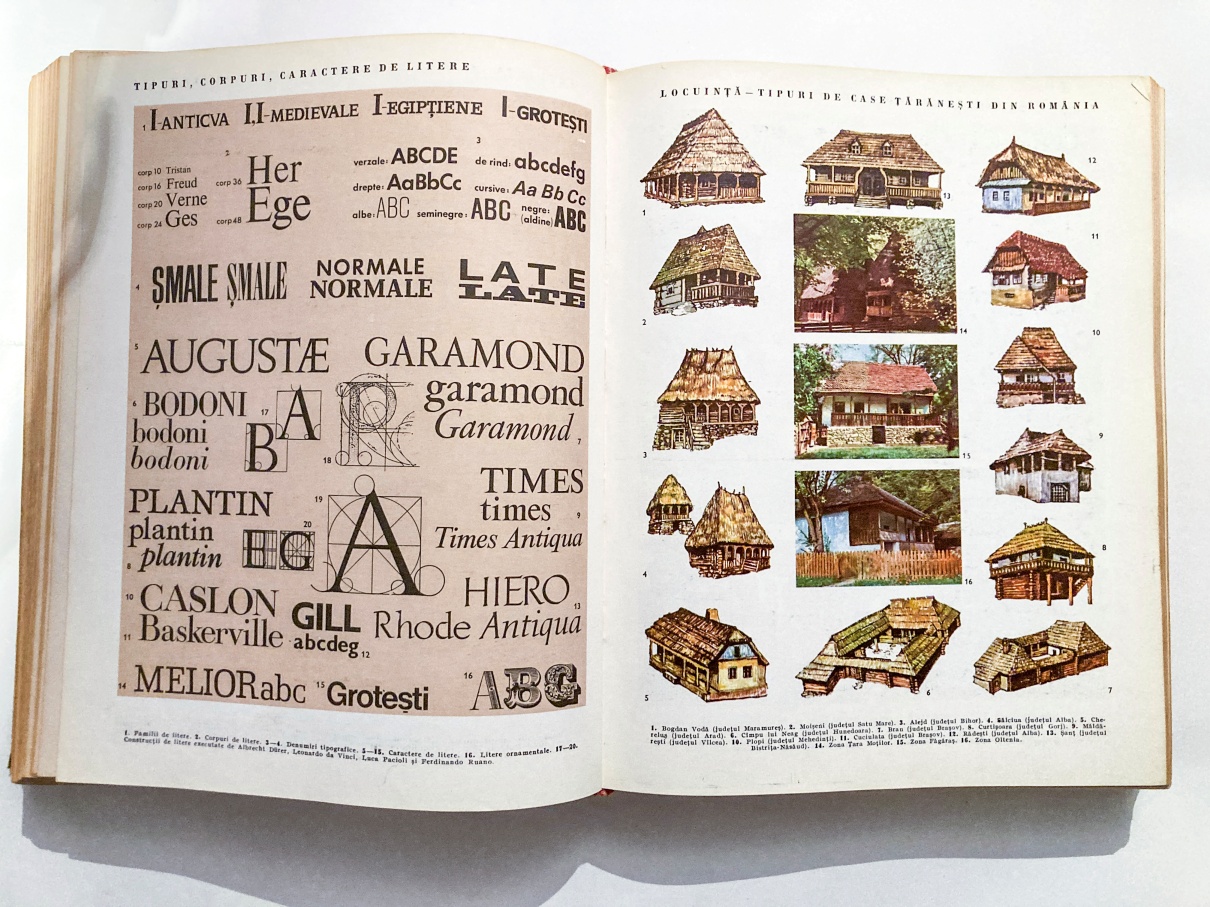 TIPURI, CORPURI, CARACTERE DE LITERE
1 I-ANTICVA I,I-MEDIEVALE I-EGIPȚIENE I-GROTEȘTI
2
corp 10 Tristan
corp 16 Freud
corp 20 Verne
corp 24 Ges
corp 36 Her
corp 48 Ege
3
verzale: ABCDE de rind: abcdefg
drepte: AaBbCc cursive: Aa Bb Cc
albe: ABC seminegre: ABC negre: (aldine) ABC
4 ȘMALE ȘMALE NORMALE LATE
NORMALE LATE
5 AUGUSTÆ GARAMOND
garamond
Garamond 7
6 BODONI
bodoni
bodoni
17 A
B
18 R
PLANTIN
plantin
8 plantin
19 A
20 E G
TIMES
times 9
Times Antiqua
10 CASLON
11 Baskerville
GILL
abcdeg 12
HIERO 13
Rhode Antiqua
14 MELIOR abc 15 Grotești 16 ABG
1. Familii de litere. 2. Corpuri de litere. 3—4. Denumiri tipografice. 5—15. Caractere de litere. 16. Litere ornamentale. 17—20.
Construcții de litere executate de Albrecht Dürer, Leonardo da Vinci, Luca Pacioli și Ferdinando Ruano.
LOCUINȚĂ — TIPURI DE CASE ȚĂRĂNEȘTI DIN ROMÂNIA
1
13
12
2
14
11
3
15
10
9
4
16
8
5
6
7
1. Bogdan Vodă (județul Maramureș). 2. Moișeni (județul Satu Mare). 3. Aleșd (județul Bihor). 4. Sălciua (județul Alba). 5. Che-
relaș (județul Arad). 6. Cîmpu lui Neag (județul Hunedoara). 7. Bran (județul Brașov). 8. Curtișoara (județul Gorj). 9. Măldă-
rești (județul Vîlcea). 10. Plopi (județul Mehedinți). 11. Caciulata (județul Brașov). 12. Rădești (județul Alba). 13. Șanț (județul
Bistrița-Năsăud). 14. Zona Țara Moților. 15. Zona Făgăraș. 16. Zona Olteniei.